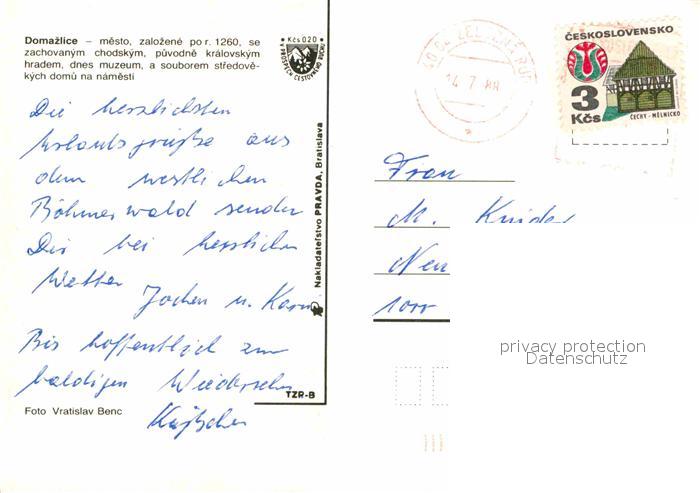 Domažlice – město, založené po r. 1260, se
zachovaným chodským, původně královským
hradem, dnes muzeum, a souborem středově-
kých domů na náměstí
Kčs 0,20
Die herzlichsten
Urlaubsgrüße aus
dem westlichen
Böhmerwald senden
Dir bei herrlichem
Wetter
Jochen u. Karin
Bis hoffentlich zum
baldigen Wiedersehen
Foto Vratislav Benc
Nakladatelství PRAVDA, Bratislava
TZR-B
14.7.88
ČESKOSLOVENSKO
3
Kčs
ČECHY - MĚLNICKO
Frau
M.
Neu
privacy protection
Datenschutz